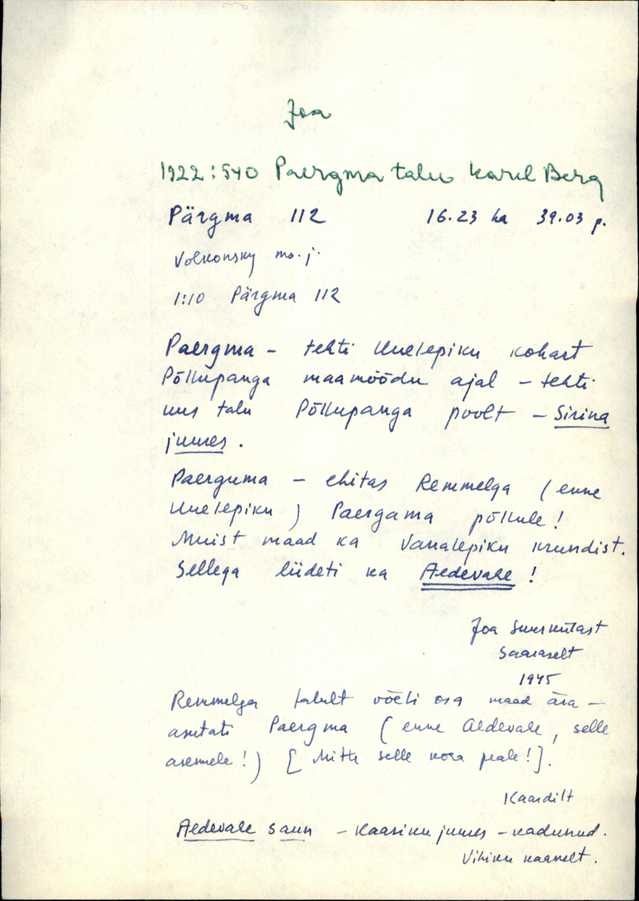 Joa
1922:540 Paergma talu Karel Berg
Pärgma 112 16.23 ha 39.03 p.
Volkonsky mo.j.
1:10 Pärgma 112
Paergma - tehti Uuelepiku kohast
Põllupanga maamõõdu ajal - tehti
uus talu Põllupanga poolt - Sirina
juures.
Paerguma - ehitas Remmelga (enne
Uuelepiku) Paergama põllule!
Muist maad ka Vanalepiku krundist.
Sellega liideti ka Aedevahe!
Joa Suurkülast
1945
Remmelga talult võeti osa maad ära -
asutati Paergma (enne Aedevahe, selle
asemele!) [Mitte selle koha peale!].
Kaardilt
Aedevahe saun - Kaasiku juures - kadunud.
Vihiku kaanelt.